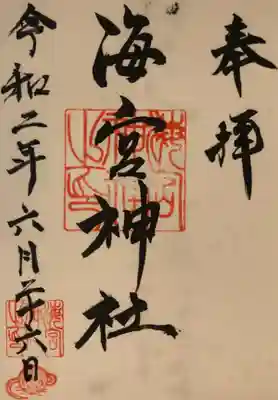 奉拝
海宮神社
令和二年六月廿六日